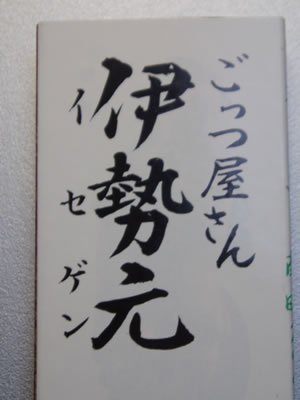 ごっつ屋さん
伊勢元
イセゲン